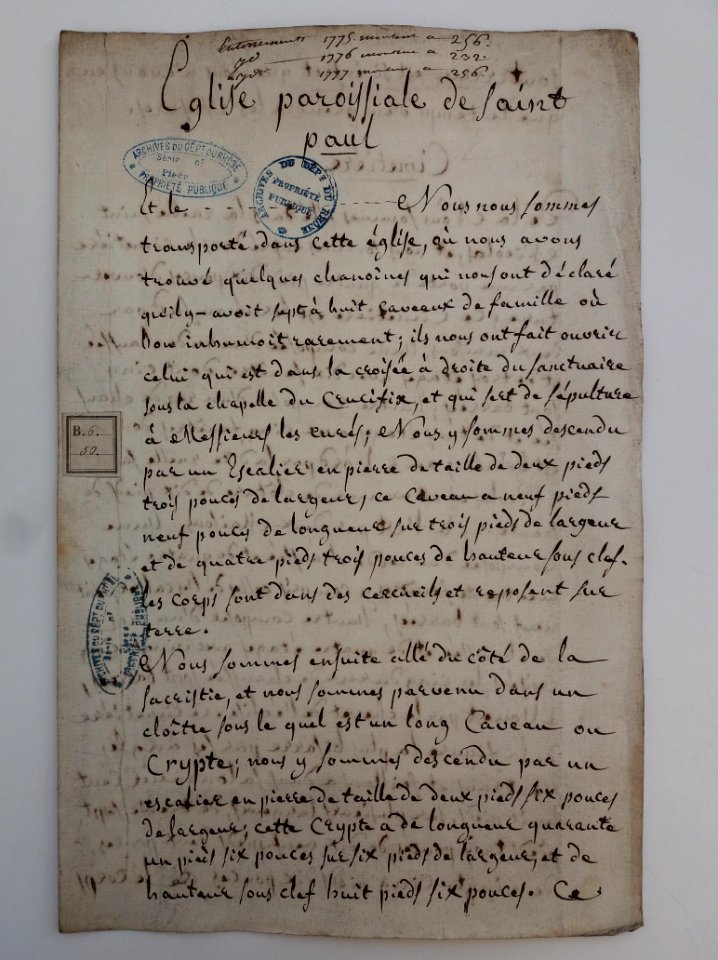 Enterrements 1775. montent a 256.
1776 montent a 232.
1777 montent a 256.
Eglise paroissiale de saint
paul
ARCHIVES DU DÉPT DU RHÔNE
Série
Pièce
PROPRIÉTÉ PUBLIQUE
ARCHIVES DU DÉPT DU RHÔNE
PROPRIÉTÉ
PUBLIQUE
Et le Nous nous sommes
transporté dans cette église, où nous avons
trouvé quelques chanoines qui nous ont déclaré
qu'il y avoit sept à huit caveaux de famille où
l'on inhumoit rarement; ils nous ont fait ouvrir
celui qui est dans la croisée à droite du sanctuaire
sous la chapelle du Crucifix, et qui sert de sépulture
à Messieurs les curés; Nous y sommes descendu
par un Escalier en pierre de taille de deux pieds
trois pouces de largeur, ce Caveau a neuf pieds
neuf pouces de longueur sur trois pieds de largeur
et de quatre pieds trois pouces de hauteur sous clef.
les corps sont dans des cercueils et reposent sur
terre.
B. 6.
50.
ARCHIVES DU DÉPT DU RHÔNE
Série
PROPRIÉTÉ PUBLIQUE
Nous sommes ensuite allé du côté de la
sacristie, et nous sommes parvenu dans un
cloître sous le quel est un long Caveau ou
Crypte; nous y sommes descendu par un
escalier en pierre de taille de deux pieds six pouces
de largeur; cette Crypte à de longueur quarante
un pieds six pouces sur six pieds de largeur, et de
hauteur sous clef huit pieds six pouces. Ce